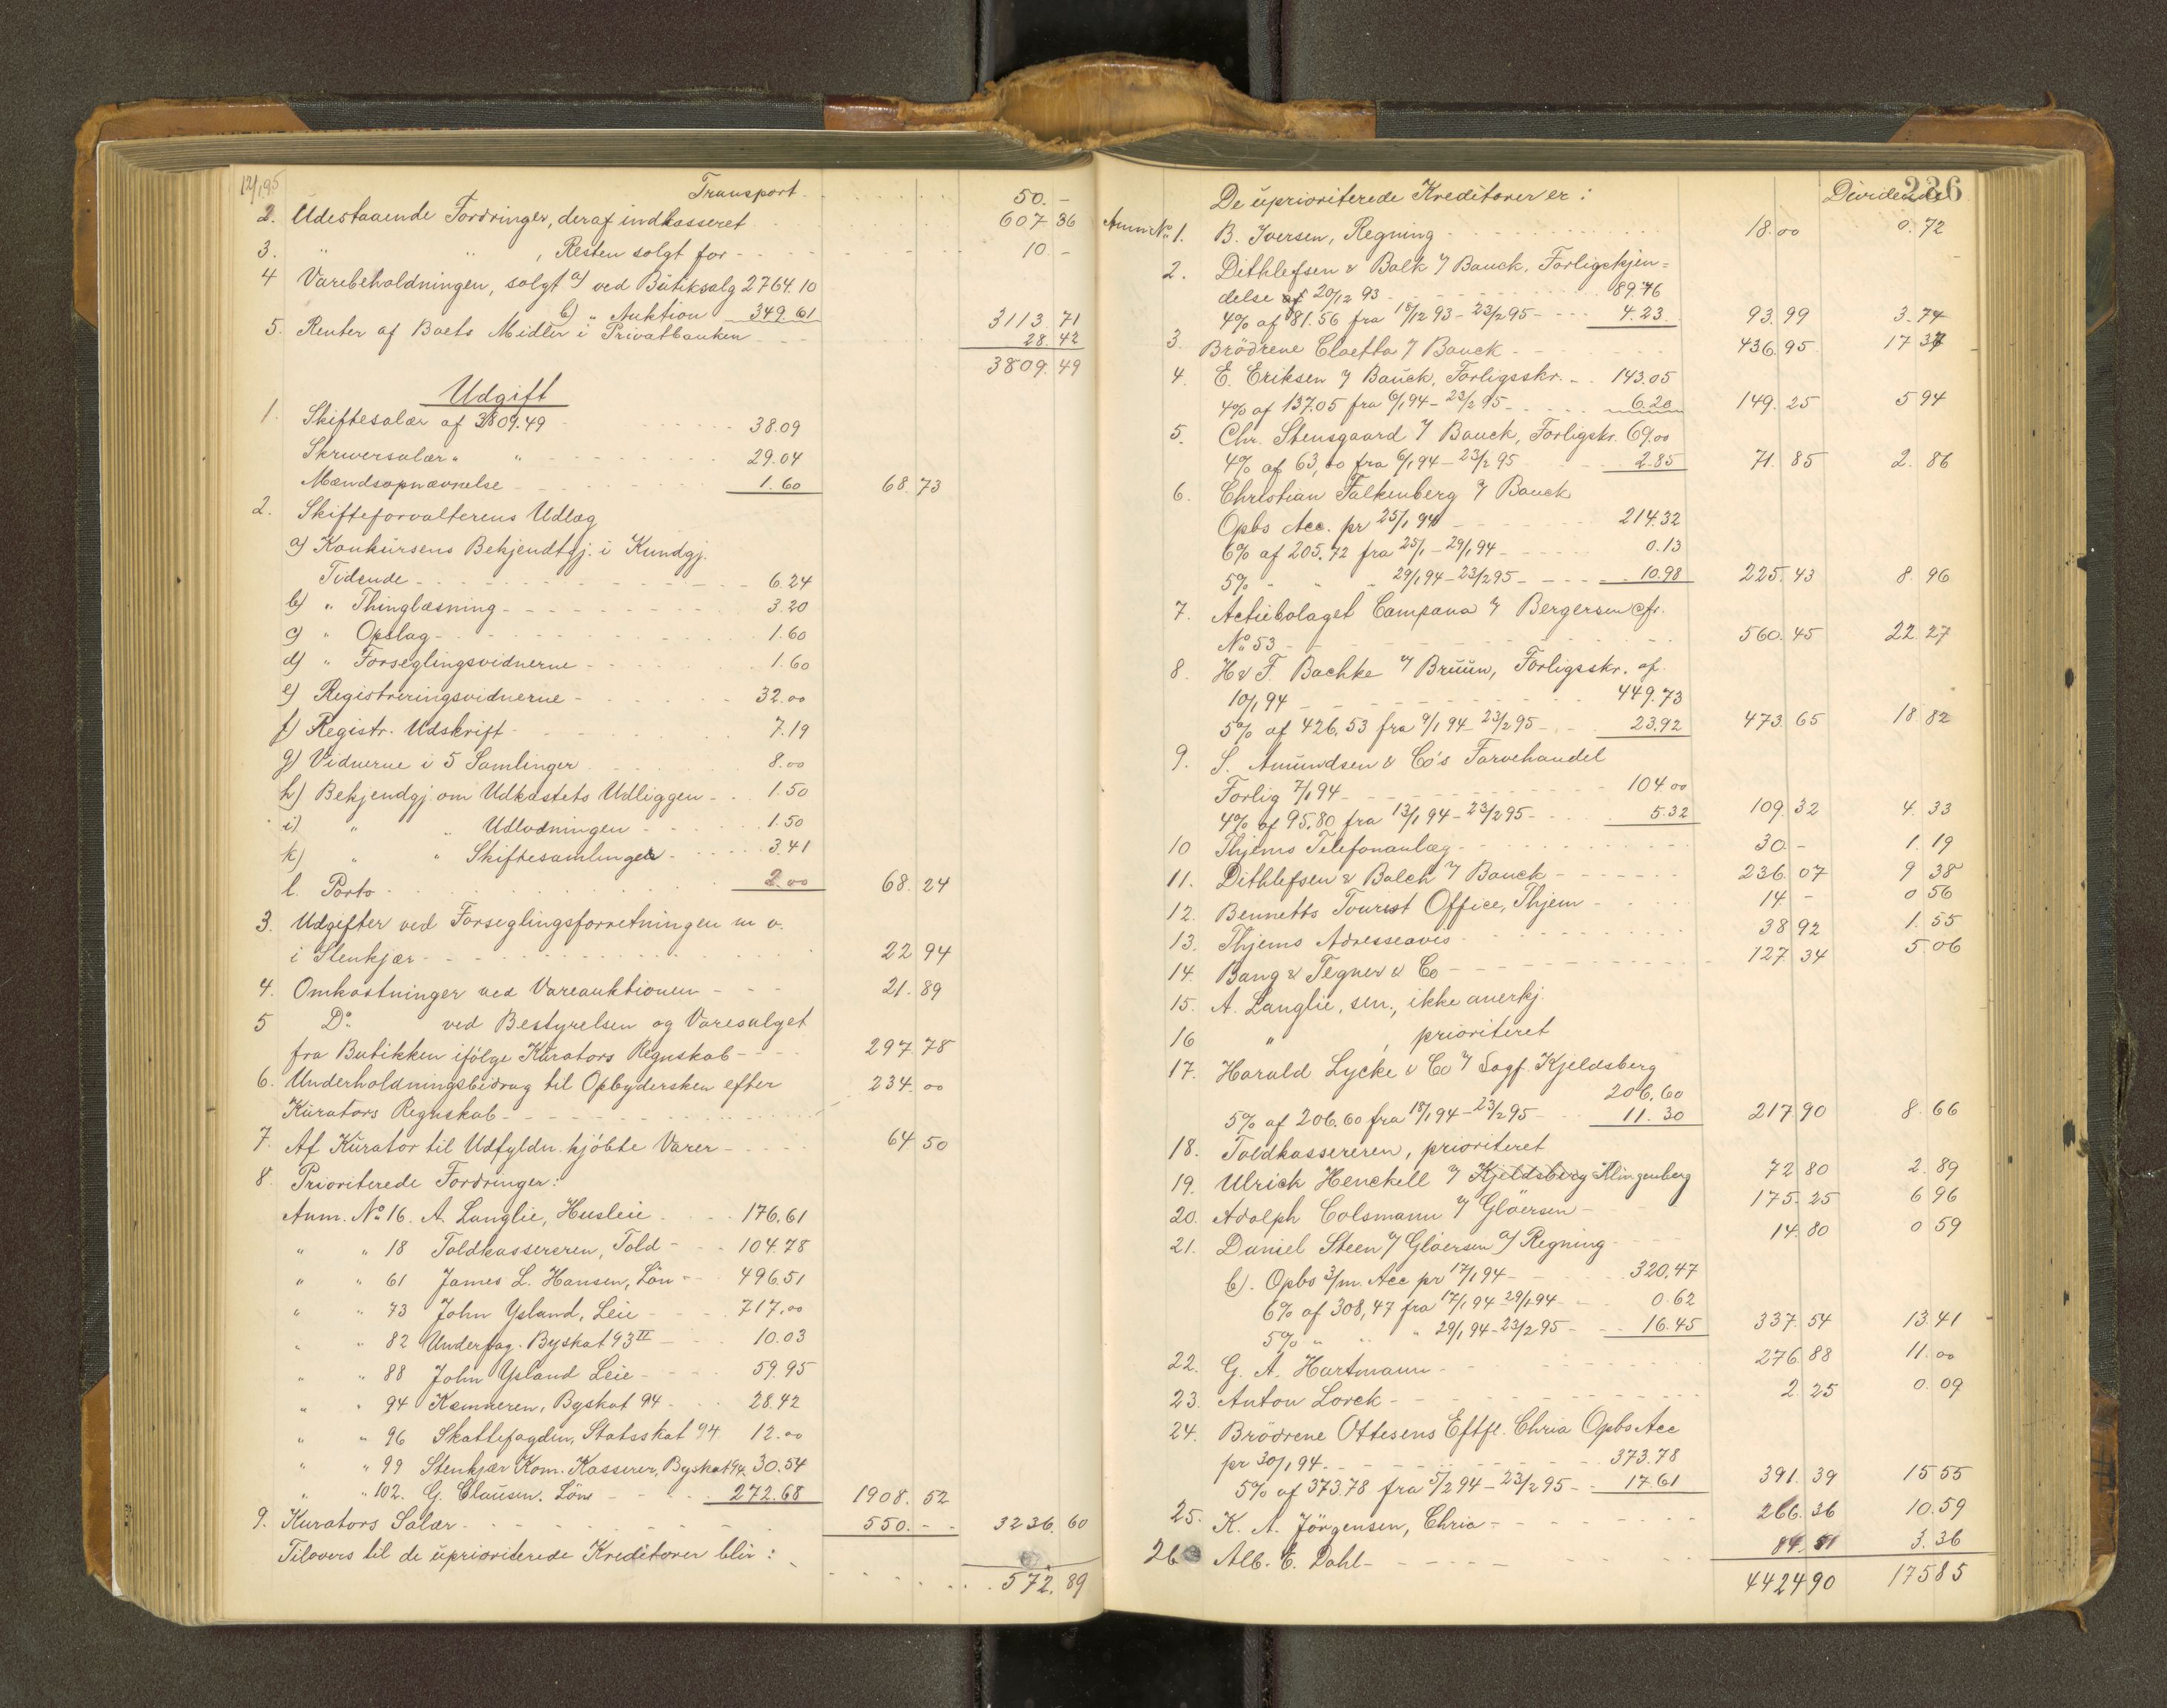 12/1 95
Transport 50.-
2. Udestaaende Fordringer, deraf indkasseret 607 36
3. " " , Resten solgt for 10 -
4 Varebeholdningen, solgt a) ved Butiksalg 2764.10
b) " Auktion 349 61 3113.71
5. Renter af Boets Midler i Privatbanken 28.42
3809.49
Udgift
1. Skiftesalær af 3809.49 38.09
Skriversalær " " 29.04
Mændsopnævnelse 1.60 68.73
2. Skifteforvalterens Udlæg
a) Konkursens Bekjendtgj. i Kundgj.
Tidende 6.24
b) " Thinglæsning 3.20
c) " Opslag 1.60
d) " Forseglingsvidnerne 1.60
e) Registreringsvidnerne 32.00
f) Registr. Udskrift 7.19
g) Vidnerne i 5 Samlinger 8.00
h) Bekjendgj. om Udkastets Udliggen 1.50
i) " " Udlodningen 1.50
k) " " Skiftesamlinger 3.41
l. Porto 2.00 68.24
3. Udgifter ved Forseglingsforretningen m v.
i Stenkjær 22 94
4. Omkostninger ved Vareauktionen 21.89
5 Do. ved Bestyrelsen og Varesalget
fra Butikken ifølge Kurators Regnskab 297.78
6. Underholdningsbidrag til Opbydersken efter 234.00
Kurators Regnskab
7. Af Kurator til Udfyldn. kjöbte Varer 64 50
8. Prioriterede Fordringer:
Anm. No 16. A. Langlie, Husleie 176.61
" " 18 Toldkassereren, Told 104.78
" " 61 James L. Hansen, Lön 496.51
" " 73 John Ysland, Leie 717.00
" " 82 Underfog. Byskat 93 II 10.03
" " 88 John Ysland Leie 59.95
" " 94 Kemneren, Byskat 94 28.42
" " 96 Skattefogden, Statsskat 94 12.00
" " 99 Stenkjær Kom. Kasserer, Byskat 94. 30.54
" " 102. G. Clausen. Lön 272.68 1908.52
9. Kurators Salær 550.-- 3236.60
Tilovers til de uprioriterede Kreditorer blir:
572.89
236
De uprioriterede Kreditorer er: Dividende
Anm. No. 1. B. Iversen, Regning 18.00 0.72
2. Dithlefsen & Balk v/ Bauck, Forligskjen=
delse af 20/12 93 89.76
4% af 81.56 fra 18/12 93 - 23/2 95 4.23 93.99 3.74
3. Brödrene Cloetta v/ Bauck 436.95 17 37
4. E. Eriksen v/ Bauck, Forligsskr. 143.05
4% af 137.05 fra 6/1 94 - 23/2 95 6.20 149.25 5 94
5. Chr. Stensgaard v/ Bauck, Forligskr. 69.00
4% af 63,00 fra 6/1 94 - 23/2 95 2.85 71.85 2.86
6. Christian Falkenberg v/ Bauck
Opbs Acc. pr 25/1 94 214.32
6% af 205.72 fra 25/1 - 29/1 94 0.13
5% " " " 29/1 94 - 23/2 95 10.98 225.43 8.96
7. Actiebolaget Campana v/ Bergersen cfr.
No 53 560.45 22.27
8. H & F. Bachke v/ Bruun, Forligsskr. af
10/1 94 449.73
5% af 426.53 fra 9/1 94 - 23/2 95 23.92 473.65 18 82
9. S. Amundsen & Co's Farvehandel
Forlig 7/1 94 104.00
4% af 95.80 fra 13/1 94 - 23/2 95 5.32 109.32 4.33
10 Thjems Telefonanlæg 30 - 1.19
11. Dithlefsen & Balch v/ Bauck 236.07 9 38
12. Bennetts Tourist Office, Thjem 14 - 0 56
13. Thjems Adresseavis 38 92 1.55
14. Bang & Tegner & Co 127.34 5.06
15. A. Langlie, sen., ikke anerkj.
16 " , prioriteret
17. Harald Lycke & Co v/ Sagf. Kjeldsberg
206.60
5% af 206.60 fra 18/1 94 - 23/2 95 11.30 217.90 8.66
18. Toldkassereren, prioriteret
19. Ulrich Henckell v/ Kjeldsberg Klingenberg 72 80 2.89
20. Adolph Colsmann v/ Glöersen 175.25 6 96
21. Daniel Steen v/ Glöersen a) Regning 14.80 0 59
b). Opbs 3/m. Acc pr 17/1 94 320.47
6% af 308,47 fra 17/1 94 - 29/1 94 0.62
5% " " " 29/1 94 - 23/2 95 16.45 337 54 13.41
22. G. A. Hartmann 276 88 11.00
23. Anton Lorck 2 25 0.09
24. Brödrene Ottesens Eftfl. Chria Opbs Acc
pr 30/1 94 373.78
5% af 373.78 fra 5/2 94 - 23/2 95 17.61 391.39 15 55
25. K. A. Jörgensen, Chria 266.36 10.59
26 Alb. E. Dahl 84.51 3.36
4424 90 175 85